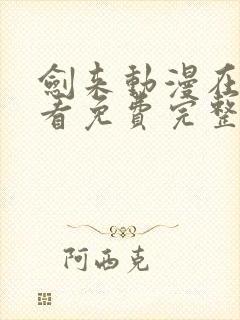 劍来動漫在
看免費完整
阿西克